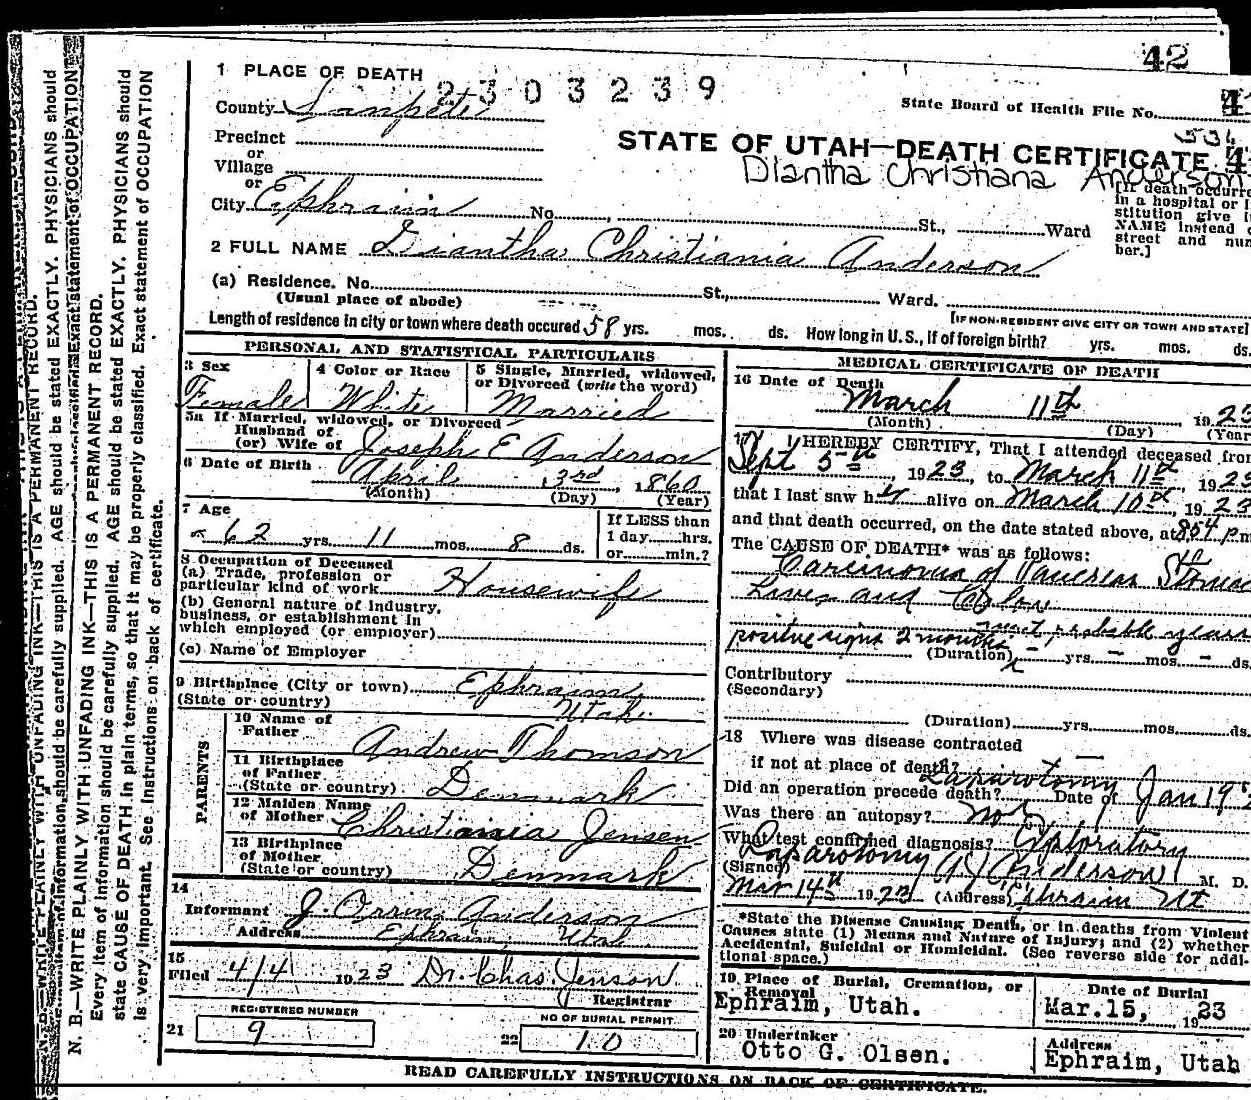 42
1 PLACE OF DEATH
2303239
County Sanpete
State Board of Health File No.
Precinct
or
Village
or
City Ephraim No. St., Ward
STATE OF UTAH—DEATH CERTIFICATE
536
Diantha Christiana Anderson
[If death occurre
in a hospital or i
stitution give i
NAME instead o
street and num
ber.]
2 FULL NAME Diantha Christiania Anderson
(a) Residence. No. St., Ward.
(Usual place of abode)
[IF NON-RESIDENT GIVE CITY OR TOWN AND STATE]
Length of residence in city or town where death occured 58 yrs. mos. ds. How long in U.S., if of foreign birth? yrs. mos. ds.
PERSONAL AND STATISTICAL PARTICULARS
3 Sex Female
4 Color or Race White
5 Single, Married, widowed,
or Divorced (write the word)
Married
5a If Married, widowed, or Divorced
Husband of
(or) Wife of Joseph E Anderson
6 Date of Birth April 3rd, 1860
(Month) (Day) (Year)
7 Age
62 yrs. 11 mos. 8 ds.
If LESS than
1 day hrs.
or min.?
8 Occupation of Deceased
(a) Trade, profession or
particular kind of work Housewife
(b) General nature of industry,
business, or establishment in
which employed (or employer)
(c) Name of Employer
9 Birthplace (City or town) Ephraim
(State or country) Utah.
PARENTS
10 Name of
Father Andrew Thomson
11 Birthplace
of Father
(State or country) Denmark
12 Maiden Name
of Mother Christiania Jensen
13 Birthplace
of Mother
(State or country) Denmark
14
Informant J. Orrin Anderson
Address Ephraim, Utah
15
Filed 4/4 1923 Dr. Chas. Jenson
Registrar
21 REGISTERED NUMBER
9
22 NO OF BURIAL PERMIT
10
MEDICAL CERTIFICATE OF DEATH
16 Date of Death
March 11th 1923
(Month) (Day) (Year
17 I HEREBY CERTIFY, That I attended deceased from
Sept 5th 1923, to March 11th, 1923
that I last saw her alive on March 10th, 1923
and that death occurred, on the date stated above, at 854 P.m
The CAUSE OF DEATH* was as follows:
Carcinova of Pancreas Stomac
Liver and Colon
most probable years
positive signs 2 months
(Duration) yrs. mos. ds.
Contributory
(Secondary)
(Duration) yrs. mos. ds.
18 Where was disease contracted
if not at place of death?
Did an operation precede death? Laparotomy Date of Jan 19
Was there an autopsy? no
What test confirmed diagnosis? Exploratory
Laparotomy
(Signed) Anderson M. D.
Mar 14th 1923 (Address) Ephraim Ut
*State the Disease Causing Death, or in deaths from Violent
Causes state (1) Means and Nature of Injury; and (2) whether
Accidental, Suicidal or Homicidal. (See reverse side for addi-
tional space.)
19 Place of Burial, Cremation, or
Removal
Ephraim, Utah.
Date of Burial
Mar.15, 1923
20 Undertaker
Otto G. Olsen.
Address
Ephraim, Utah
READ CAREFULLY INSTRUCTIONS ON BACK OF CERTIFICATE.
N. B.—WRITE PLAINLY WITH UNFADING INK—THIS IS A PERMANENT RECORD.
Every item of information should be carefully supplied. AGE should be stated EXACTLY. PHYSICIANS should
state CAUSE OF DEATH in plain terms, so that it may be properly classified. Exact statement of OCCUPATION
is very important. See Instructions on back of certificate.